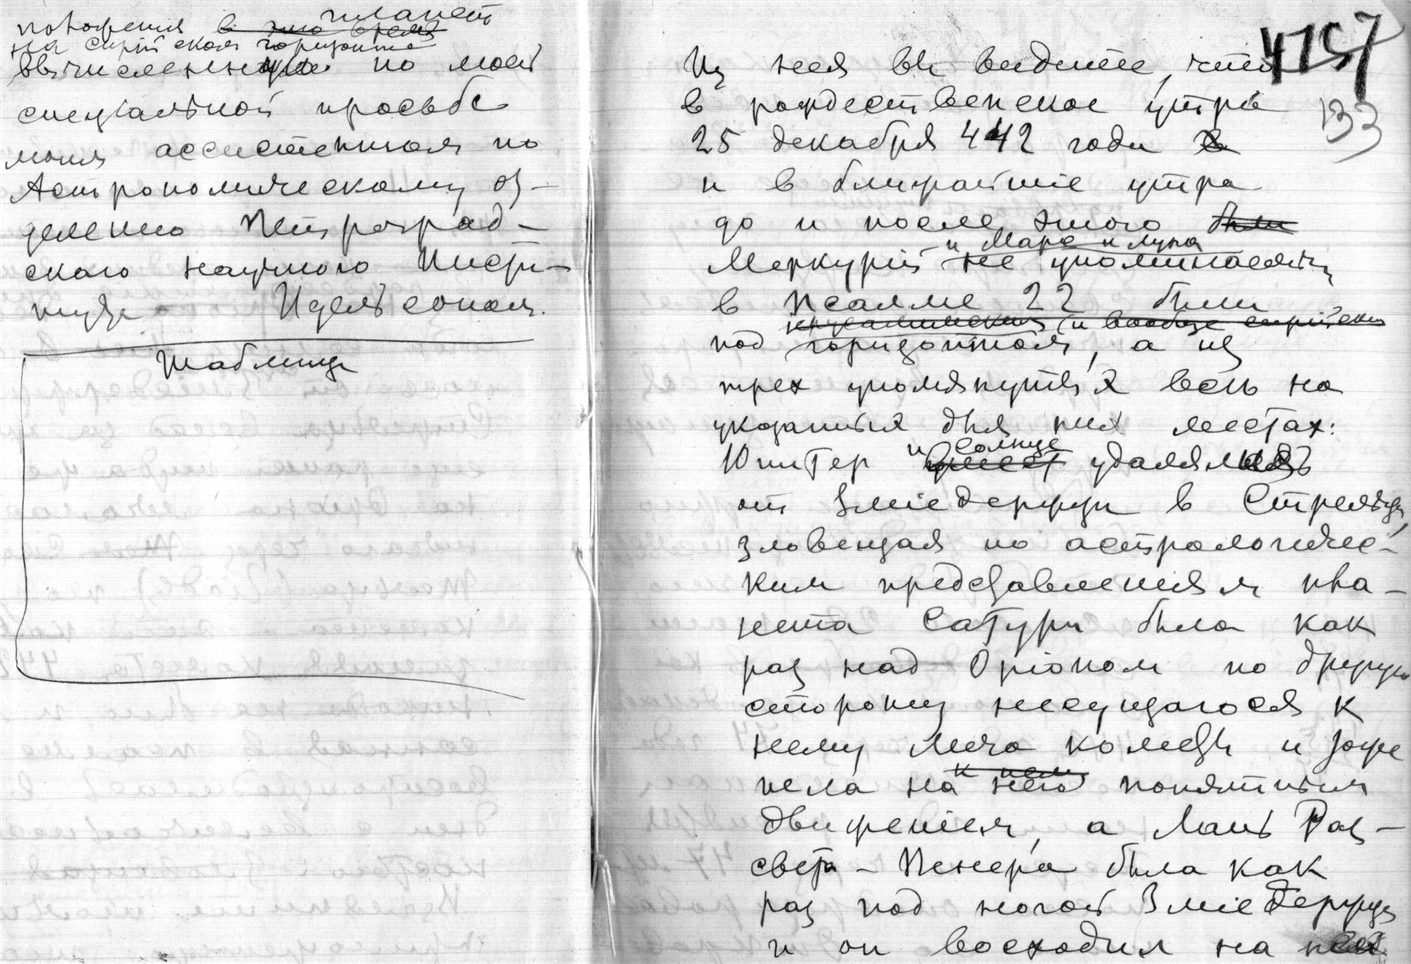 положения в это время планет
на сирийском горизонте
вычисленные по моей
специальной просьбе
моим ассистентом по
Астрономическому от-
делению Петроград-
скаго научного Инсти-
тута Идельсоном.
Таблица
4757
133
Из нея вы видите, что
в рождественское утро
25 декабря 442 года в
и в ближайшие утра
до и после этого были
Меркурий и Марс и луна
не упоминаемые
в Псалме 22 были
и вообще
под горизонтом, а из
трех упомянутых весь на
указанных для них местах:
Юпитер и солнце удалялись
от Змиедержца в Стрельца,
зловещая по астрологичес-
ким представлениям пла-
нета Сатурн была как
раз над Оріоном по другую
сторону несущагося к
нему меча кометы и тоже
шла на него к нему попятным
движеніем, а Лань Раз-
света - Венера была как
раз под ногой Змиедержца
и он восходил на ней